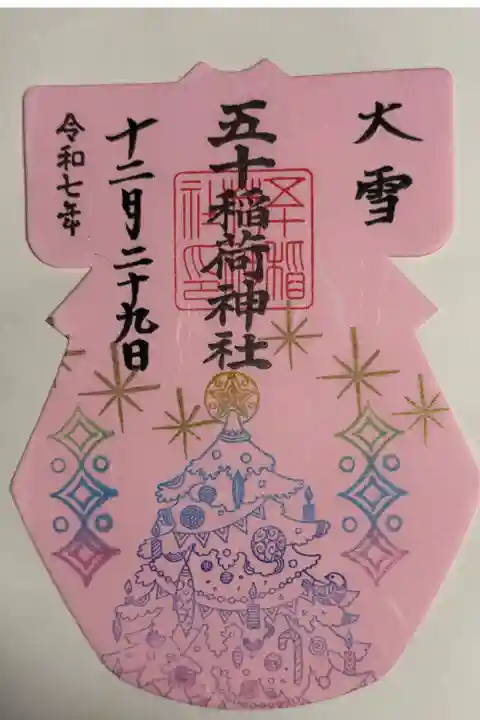 大雪
五十稲荷神社
十二月二十九日
令和七年